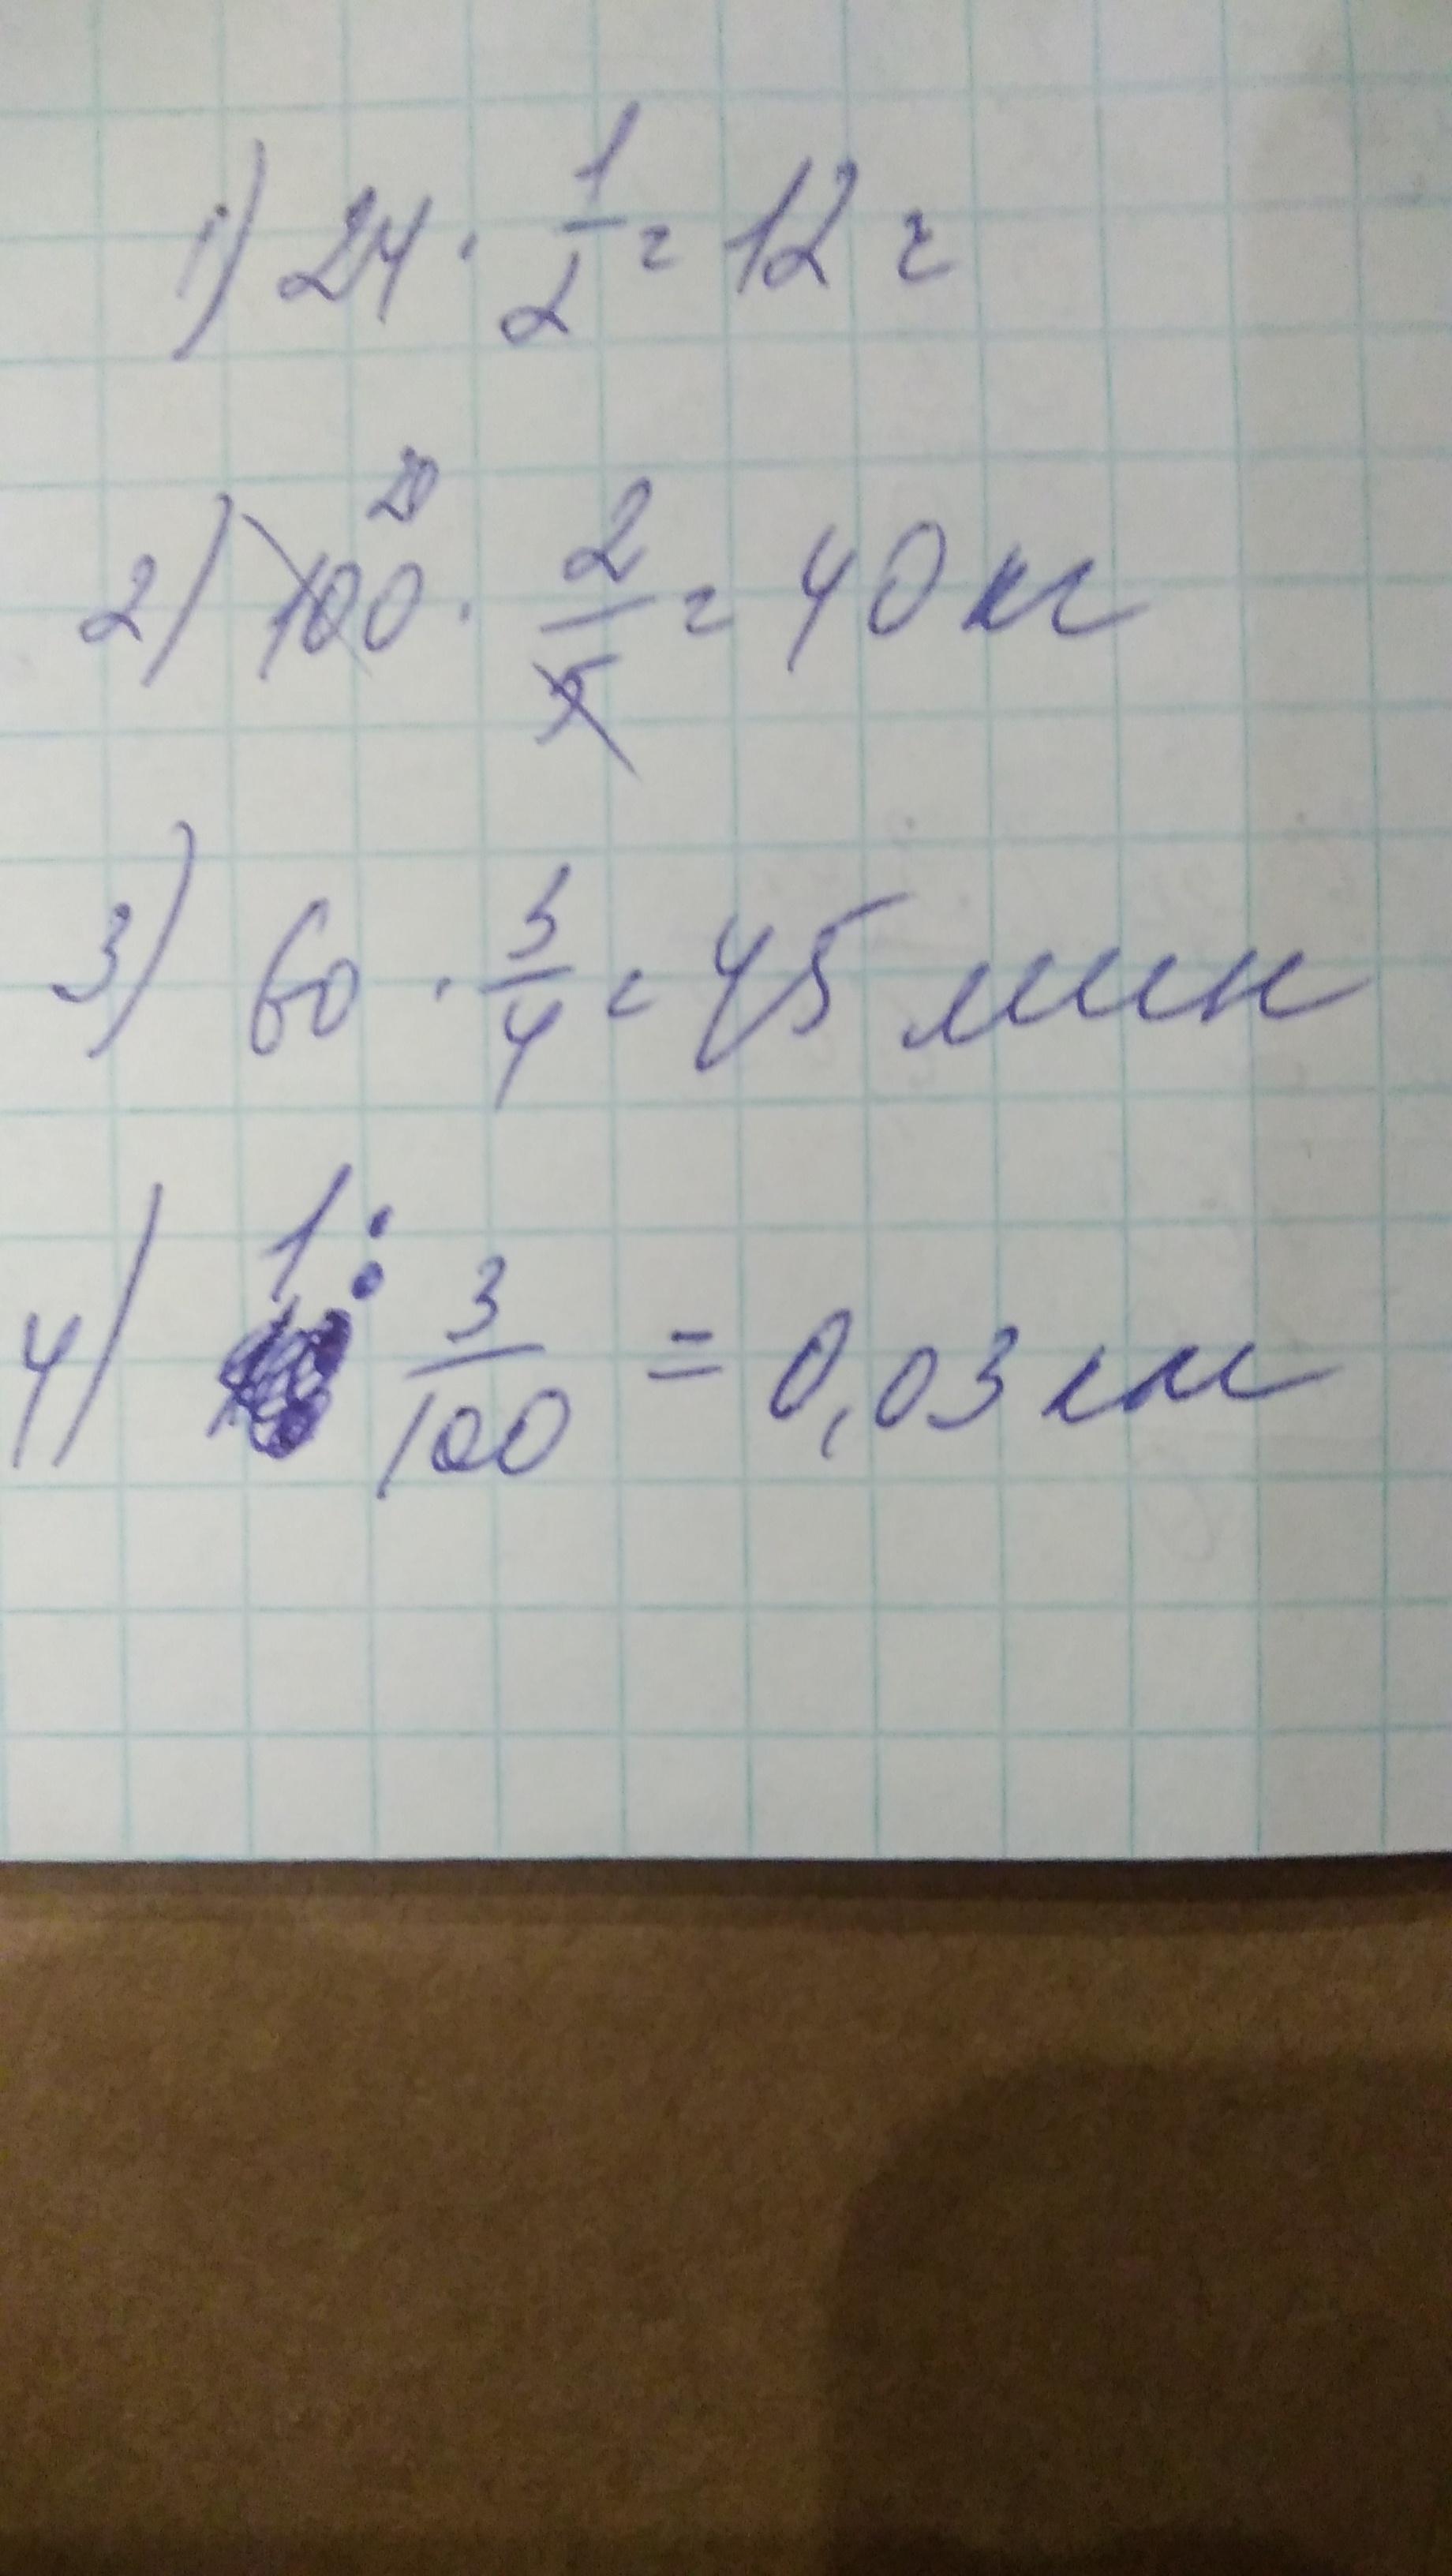 1) 24 · 1/2 = 12 г
2) 100 20 · 2/5 = 40 кг
3) 60 · 3/4 = 45 мин
4) 1 : 3/100 = 0,03 км